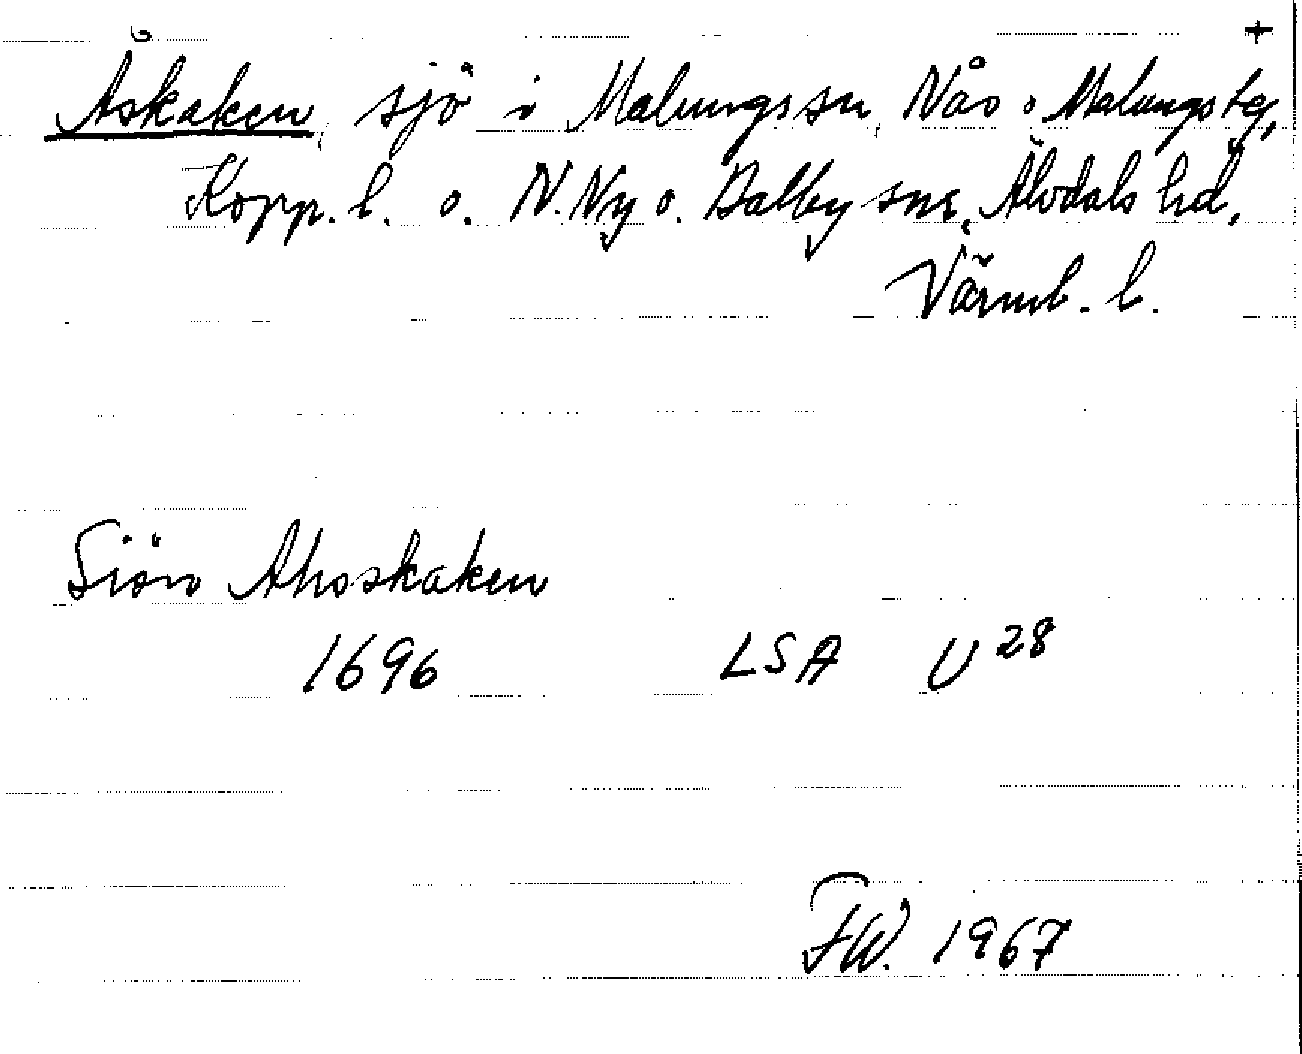 +
Åskaken, sjö i Malungs sn, Nås o Malungs tg,
Kopp. l. o. N. Ny o. Dalby snr, Älvdals hd,
Värml. l.
Siön Ahoskaken
1696 LSA U 28
FW. 1967